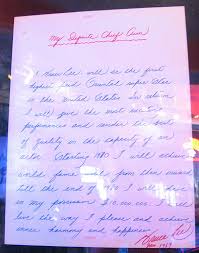 My Definite Chief Aim
I, Bruce Lee, will be the first
highest paid Oriental super star
in the United States. In return
I will give the most exciting
performances and render the best
of quality in the capacity of an
actor. Starting 1970 I will achieve
world fame and from then onward
till the end of 1980 I will have
in my possession $10,000,000. I will
live the way I please and achieve
inner harmony and happiness.
Bruce Lee
Jan. 1969